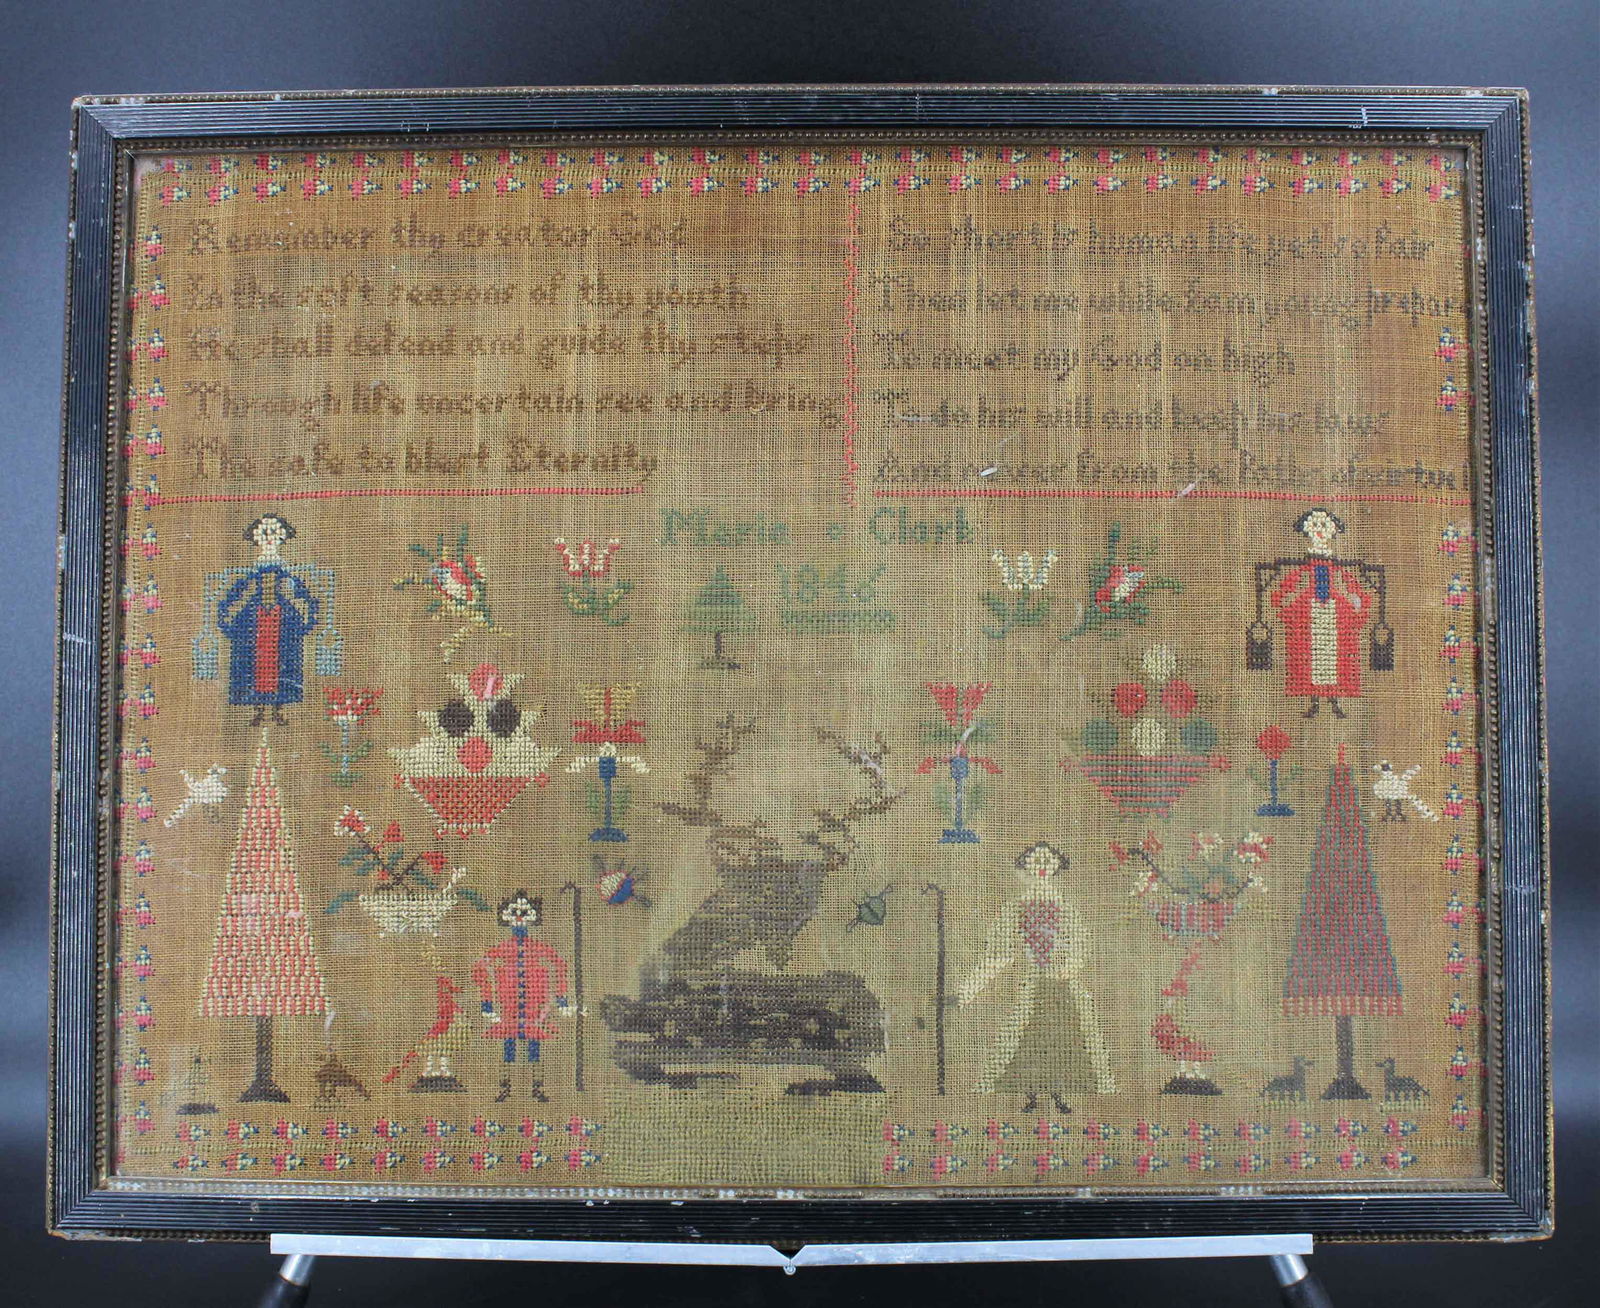 Remember thy creator God
In the soft seasons of thy youth
He shall defend and guide thy steps
Through life uncertain see and bring
The safe to blest Eternity
So short is human life yet so fair
Then let me while I am young prepar
To meet my God on high
To do his will and keep his laws
And never from the Paths of virtue
Maria Clark
1846